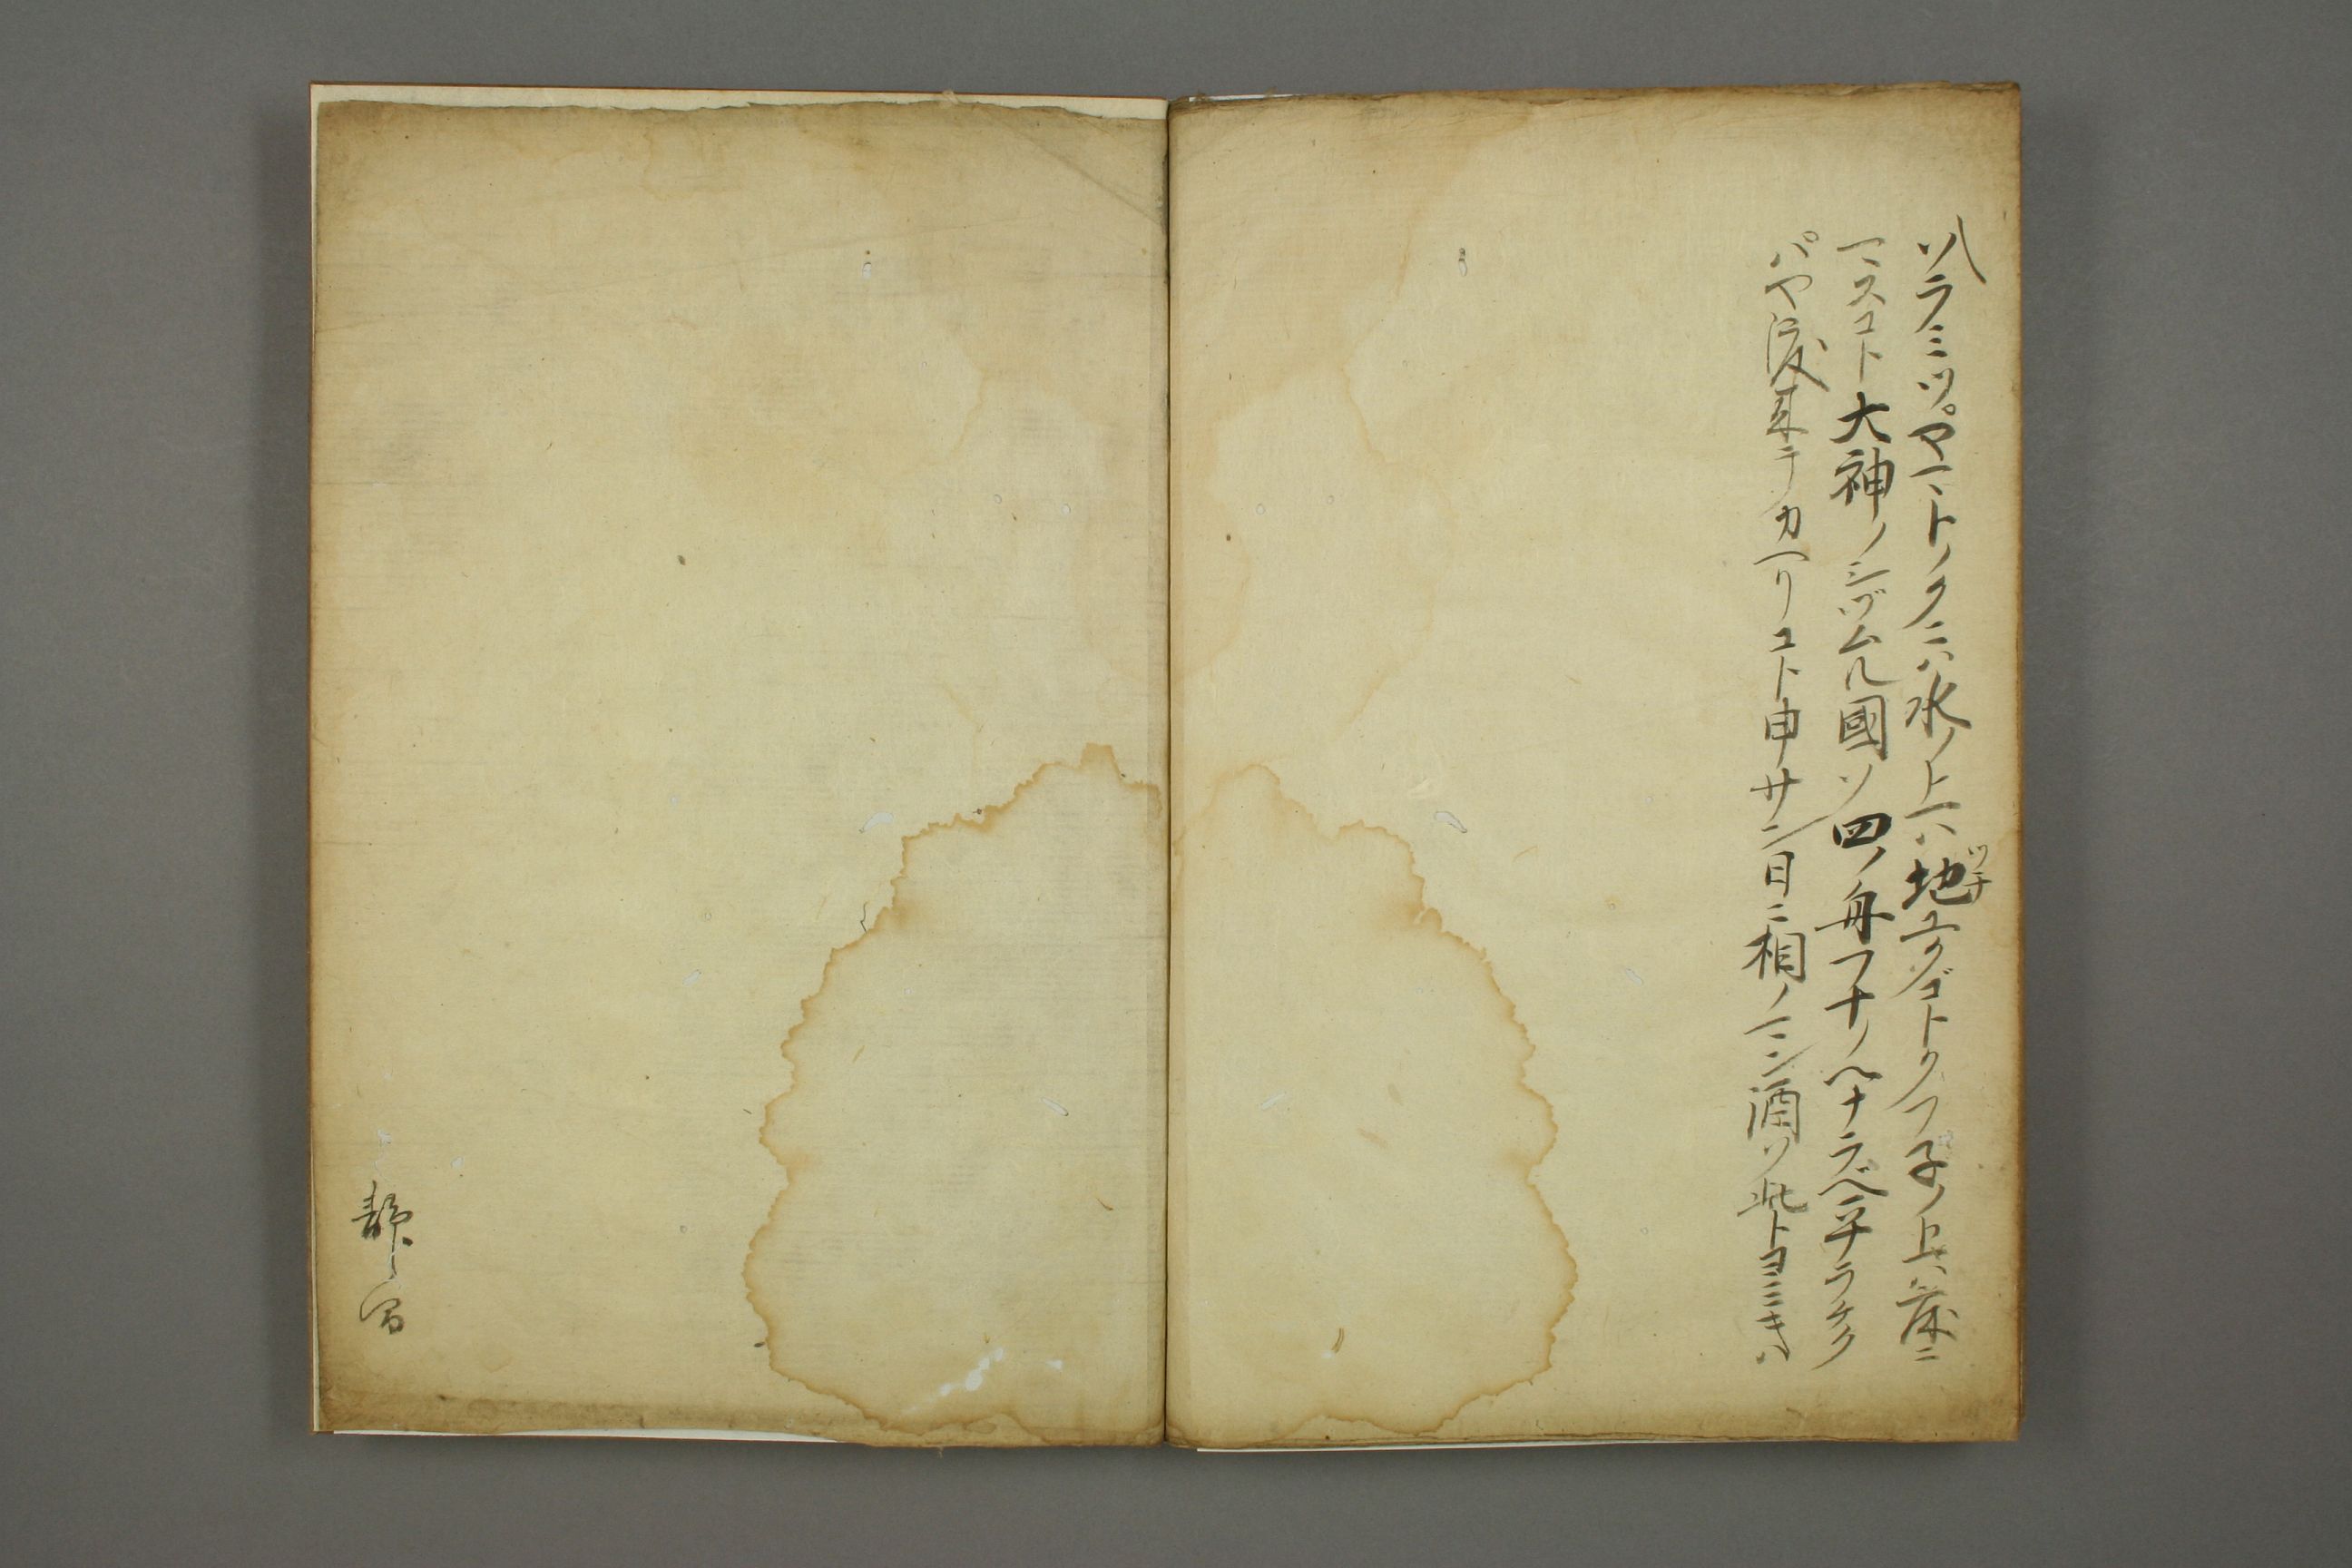 ソラミツ。ヤマトノクニハ水ノ上ハ地ユクゴトクフ子ノ上ハ床ニ
ツチ
マスコト大神ノシヅムル國ソ四ノ舟フナノヘナラベ平ラケク
。ハヤ渡来テカヘリコト申サン日ニ相ノマン酒ソ此トヨミキハ
静